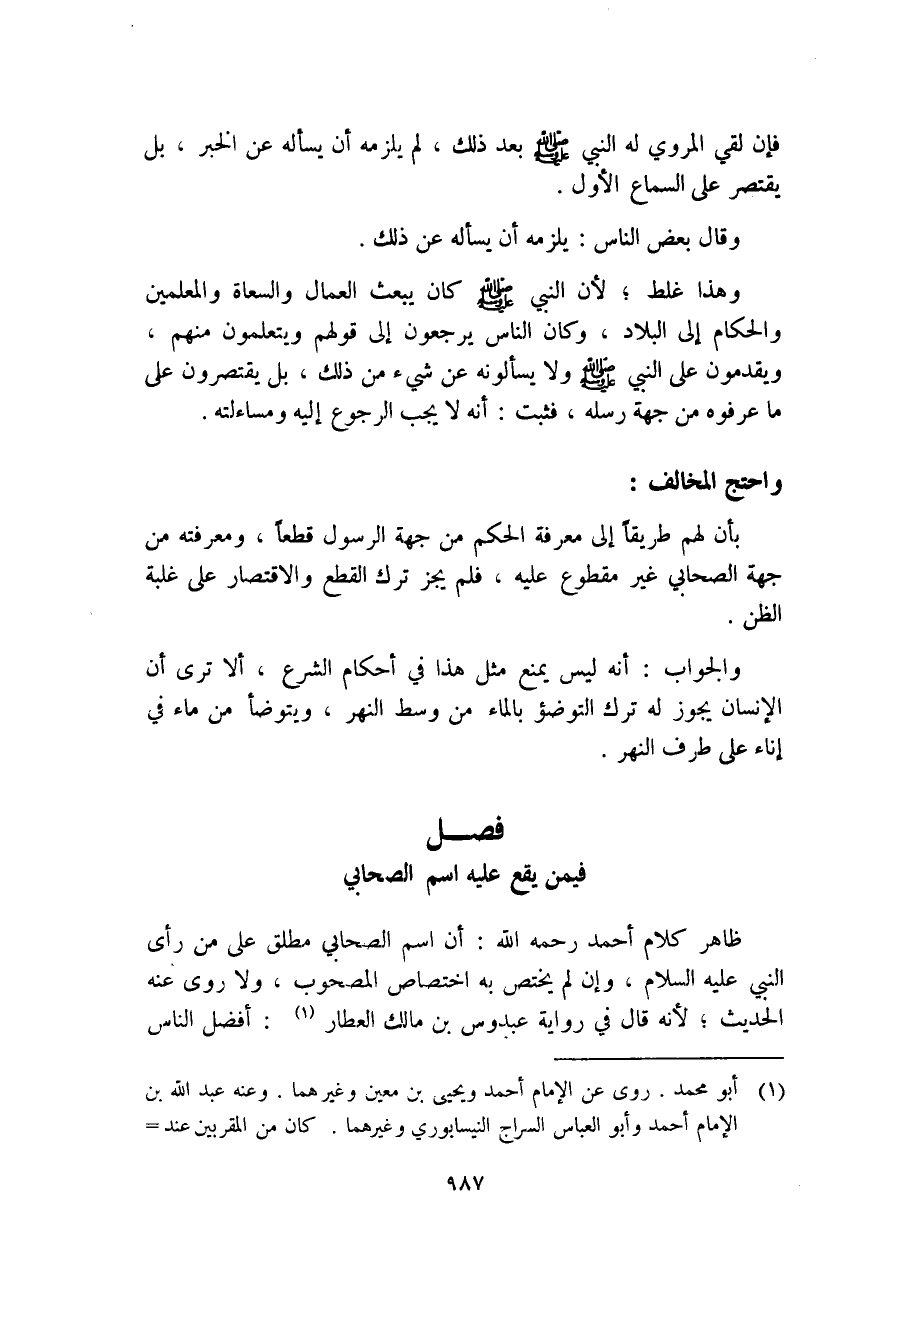 فإن لقي المروي له النبي ﷺ بعد ذلك ، لم يلزمه أن يسأله عن الخبر ، بل
يقتصر على السماع الأول .
وقال بعض الناس : يلزمه أن يسأله عن ذلك .
وهذا غلط ؛ لأن النبي ﷺ كان يبعث العمال والسعاة والمعلمين
والحكام إلى البلاد ، وكان الناس يرجعون إلى قولهم ويتعلمون منهم ،
ويقدمون على النبي ﷺ ولا يسألونه عن شيء من ذلك ، بل يقتصرون على
ما عرفوه من جهة رسله ، فثبت : أنه لا يجب الرجوع إليه ومساءلته .
واحتج المخالف :
بأن لهم طريقاً إلى معرفة الحكم من جهة الرسول قطعاً ، ومعرفته من
جهة الصحابي غير مقطوع عليه ، فلم يجز ترك القطع والاقتصار على غلبة
الظن .
والجواب : أنه ليس يمنع مثل هذا في أحكام الشرع ، ألا ترى أن
الإنسان يجوز له ترك التوضؤ بالماء من وسط النهر ، ويتوضأ من ماء في
إناء على طرف النهر .
فصل
فيمن يقع عليه اسم الصحابي
ظاهر كلام أحمد رحمه الله : أن اسم الصحابي مطلق على من رأى
النبي عليه السلام ، وإن لم يختص به اختصاص المصحوب ، ولا روى عنه
الحديث ؛ لأنه قال في رواية عبدوس بن مالك العطار (١) : أفضل الناس
(١) أبو محمد . روى عن الإمام أحمد ويحيى بن معين وغيرهما . وعنه عبد الله بن
الإمام أحمد وأبو العباس السراج النيسابوري وغيرهما . كان من المقربين عند =
٩٨٧